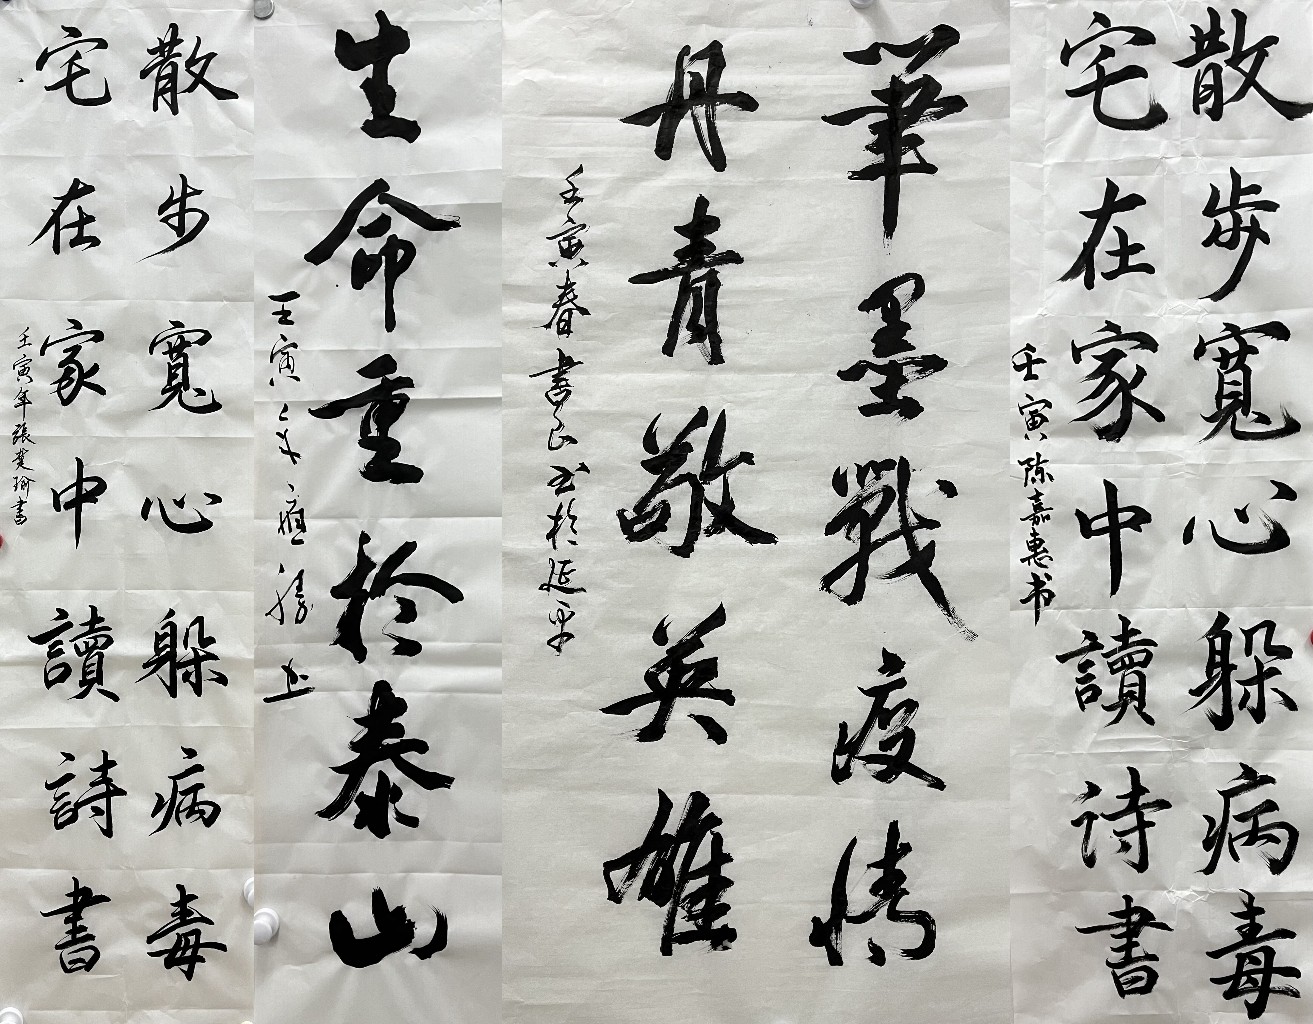 散步寬心躲病毒
宅在家中讀诗書
壬寅陈嘉惠书
筆墨戰疫情
丹青敬英雄
壬寅春書
於延平
生命重於泰山
壬寅
散步寬心躲病毒
宅在家中讀詩書
壬寅年張
書